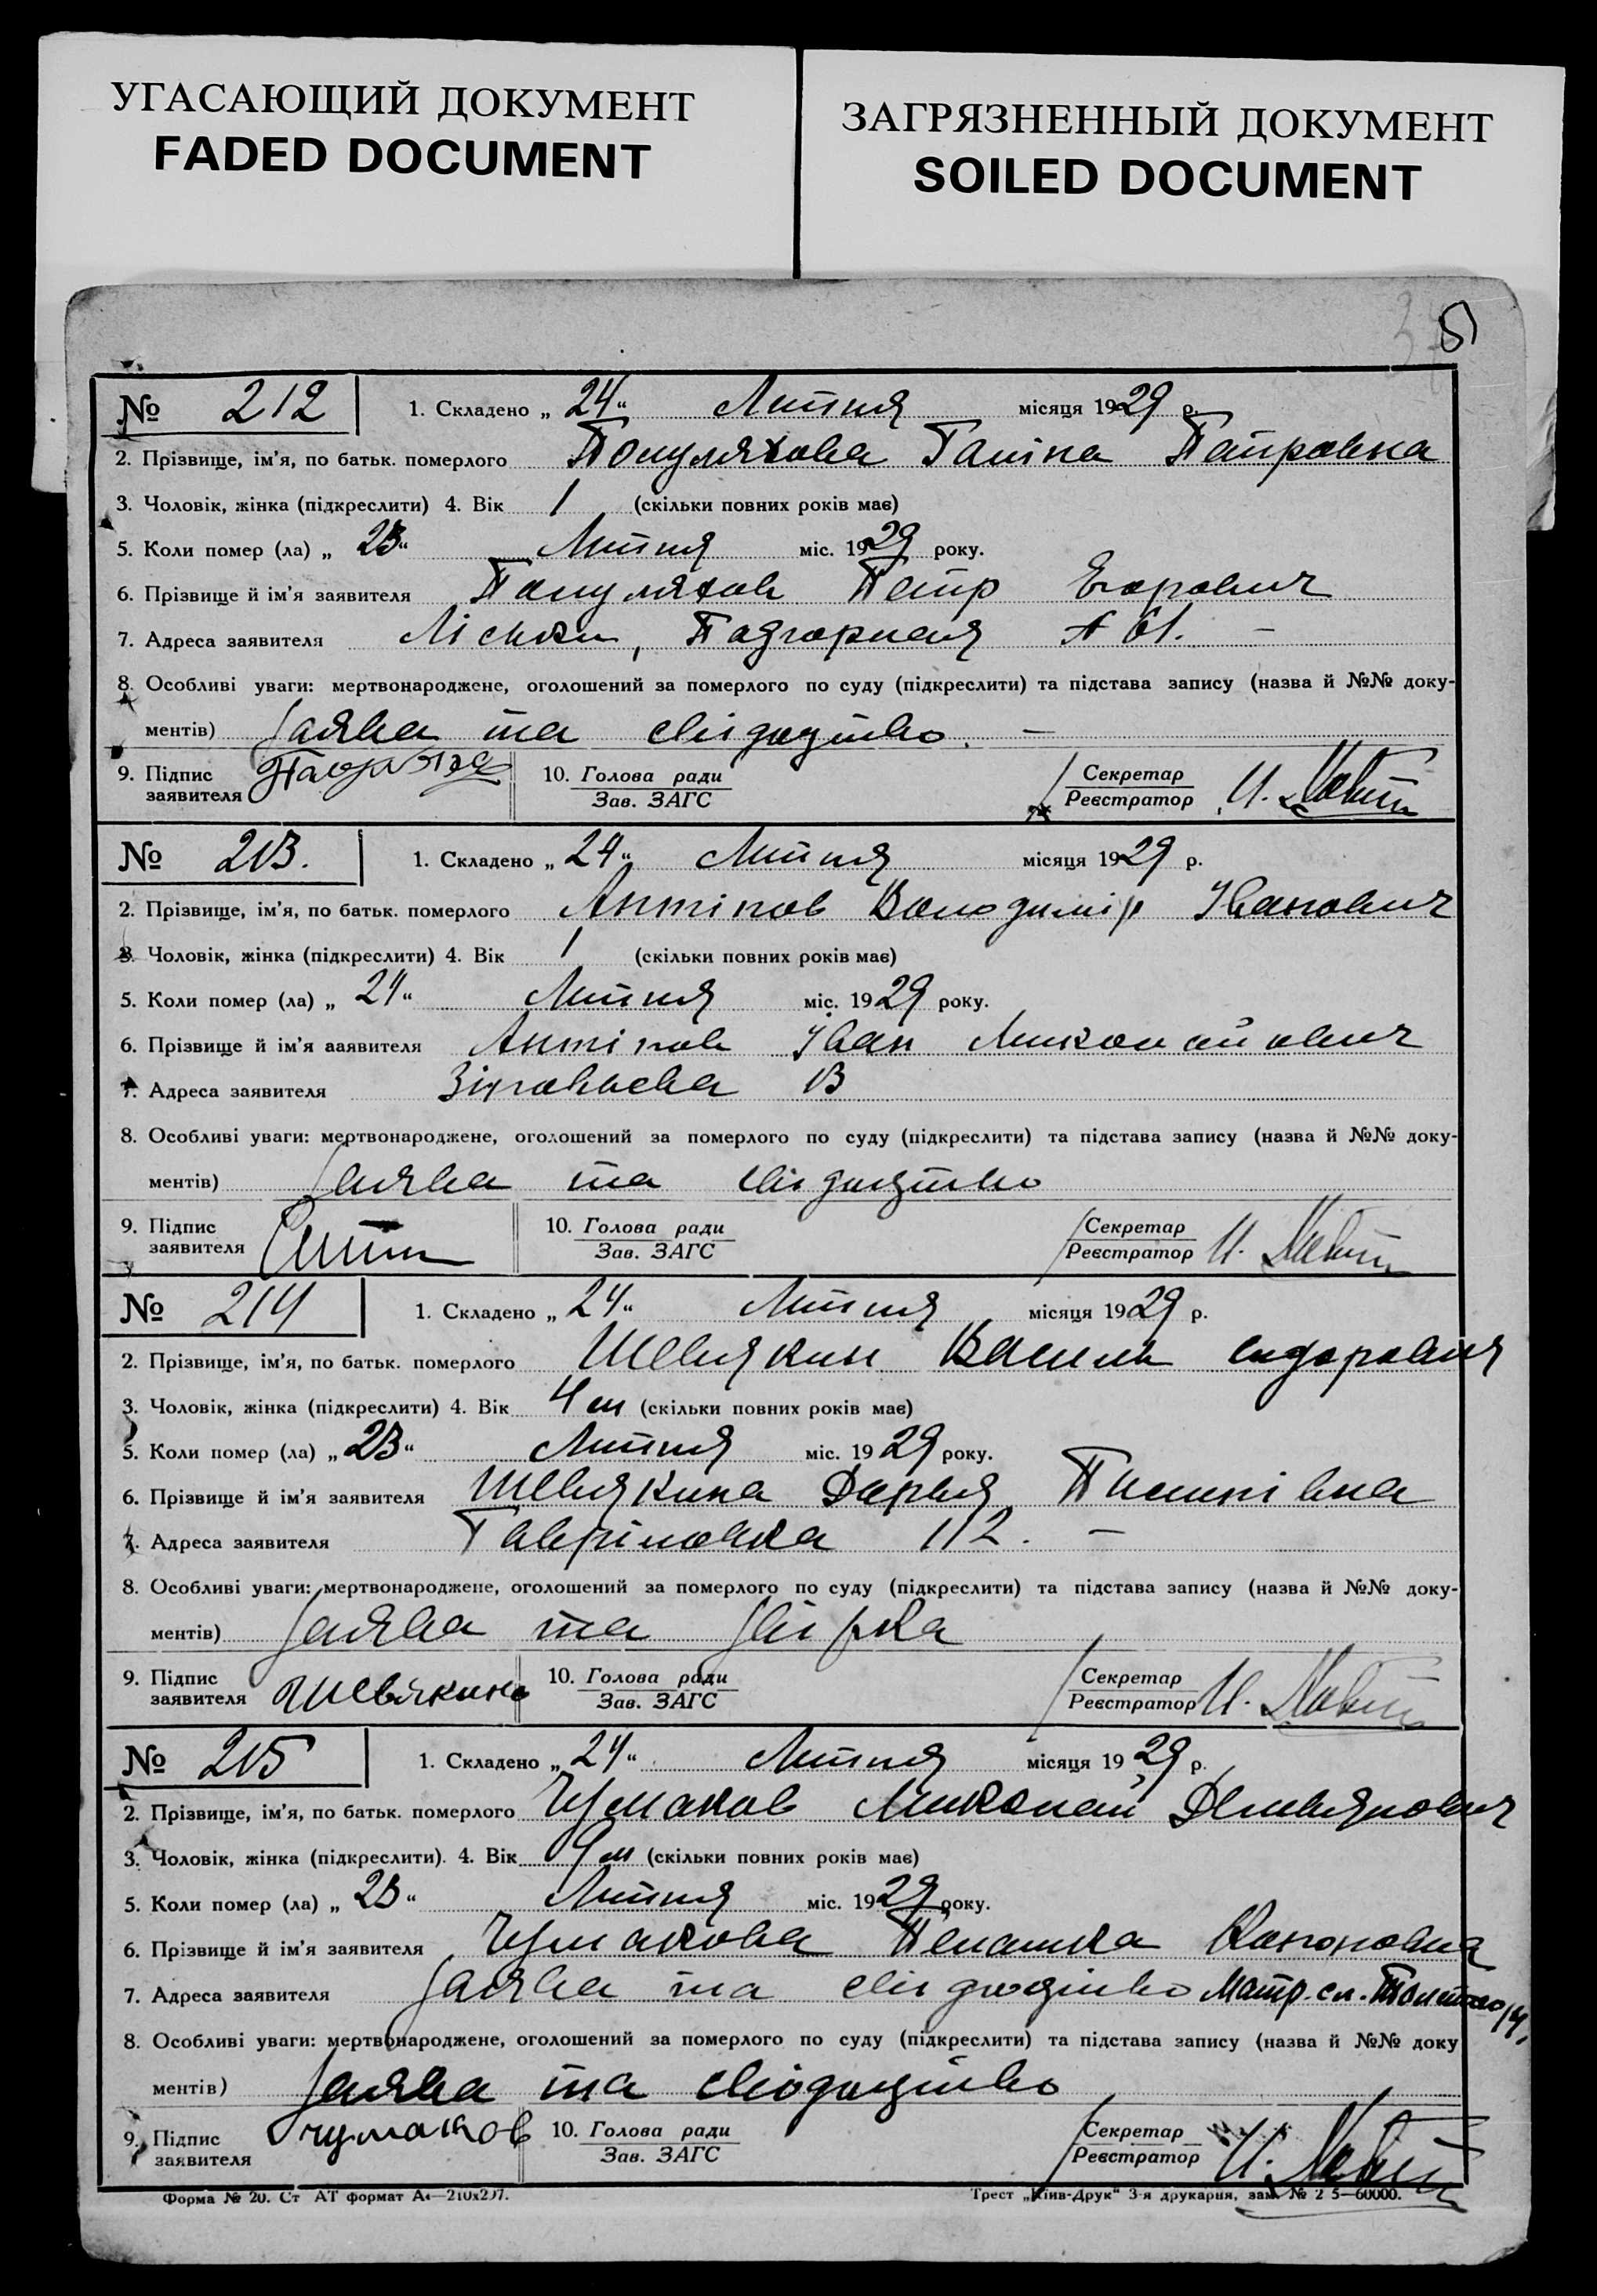 УГАСАЮЩИЙ ДОКУМЕНТ
FADED DOCUMENT
ЗАГРЯЗНЕННЫЙ ДОКУМЕНТ
SOILED DOCUMENT
51
№ 212 1. Складено „ 24 “ Липня місяця 1929 р.
2. Прізвище, ім'я, по батьк. померлого Галіна Петровна
3. Чоловік, жінка (підкреслити) 4. Вік 1 (скільки повних років має)
5. Коли помер (ла) „ 23 “ Липня міс. 1929 року.
6. Прізвище й ім'я заявителя Петр Егорович
7. Адреса заявителя Ліски, Подгорная
8. Особливі уваги: мертвонароджене, оголошений за померлого по суду (підкреслити) та підстава запису (назва й №№ доку-
ментів) Заява та свідоцтво. —
9. Підпис заявителя 10. Голова ради Зав. ЗАГС Секретар Реєстратор
№ 213. 1. Складено „ 24 “ Липня місяця 1929 р.
2. Прізвище, ім'я, по батьк. померлого Антіпов Володимір Іванович
3. Чоловік, жінка (підкреслити) 4. Вік 1 (скільки повних років має)
5. Коли помер (ла) „ 24 “ Липня міс. 1929 року.
6. Прізвище й ім'я заявителя Антіпов Іван Миколайович
7. Адреса заявителя Зіновьева 13
8. Особливі уваги: мертвонароджене, оголошений за померлого по суду (підкреслити) та підстава запису (назва й №№ доку-
ментів) Заява та свідоцтво
9. Підпис заявителя 10. Голова ради Зав. ЗАГС Секретар Реєстратор
№ 214 1. Складено „ 24 “ Липня місяця 1929 р.
2. Прізвище, ім'я, по батьк. померлого Шевякин Василь Сидорович
3. Чоловік, жінка (підкреслити) 4. Вік 4 м (скільки повних років має)
5. Коли помер (ла) „ 23 “ Липня міс. 1929 року.
6. Прізвище й ім'я заявителя Шевякина Дарья
7. Адреса заявителя Гавріловка 112. —
8. Особливі уваги: мертвонароджене, оголошений за померлого по суду (підкреслити) та підстава запису (назва й №№ доку-
ментів) Заява та
9. Підпис заявителя Шевякина 10. Голова ради Зав. ЗАГС Секретар Реєстратор
№ 215 1. Складено „ 24 “ Липня місяця 1929 р.
2. Прізвище, ім'я, по батьк. померлого Чумаков Миколай Демьянович
3. Чоловік, жінка (підкреслити). 4. Вік (скільки повних років має)
5. Коли помер (ла) „ 23 “ Липня міс. 1929 року.
6. Прізвище й ім'я заявителя Чумакова Пелашка
7. Адреса заявителя Заява та свідоцтво
8. Особливі уваги: мертвонароджене, оголошений за померлого по суду (підкреслити) та підстава запису (назва й №№ доку
ментів) Заява та свідоцтво
9. Підпис заявителя Чумаков 10. Голова ради Зав. ЗАГС Секретар Реєстратор
Форма № 20. Ст АТ формат А4—210х297. Трест „Київ-Друк“ 3-я друкарня, зам. № 2 5—60000.